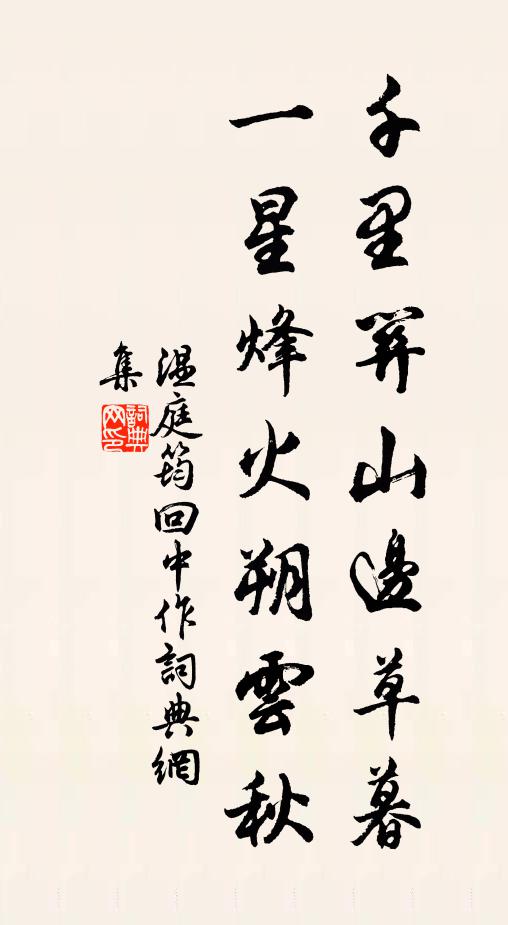 千里關山邊草暮
一星烽火朔雲秋
溫庭筠回中作詞典網
集
詞典網印